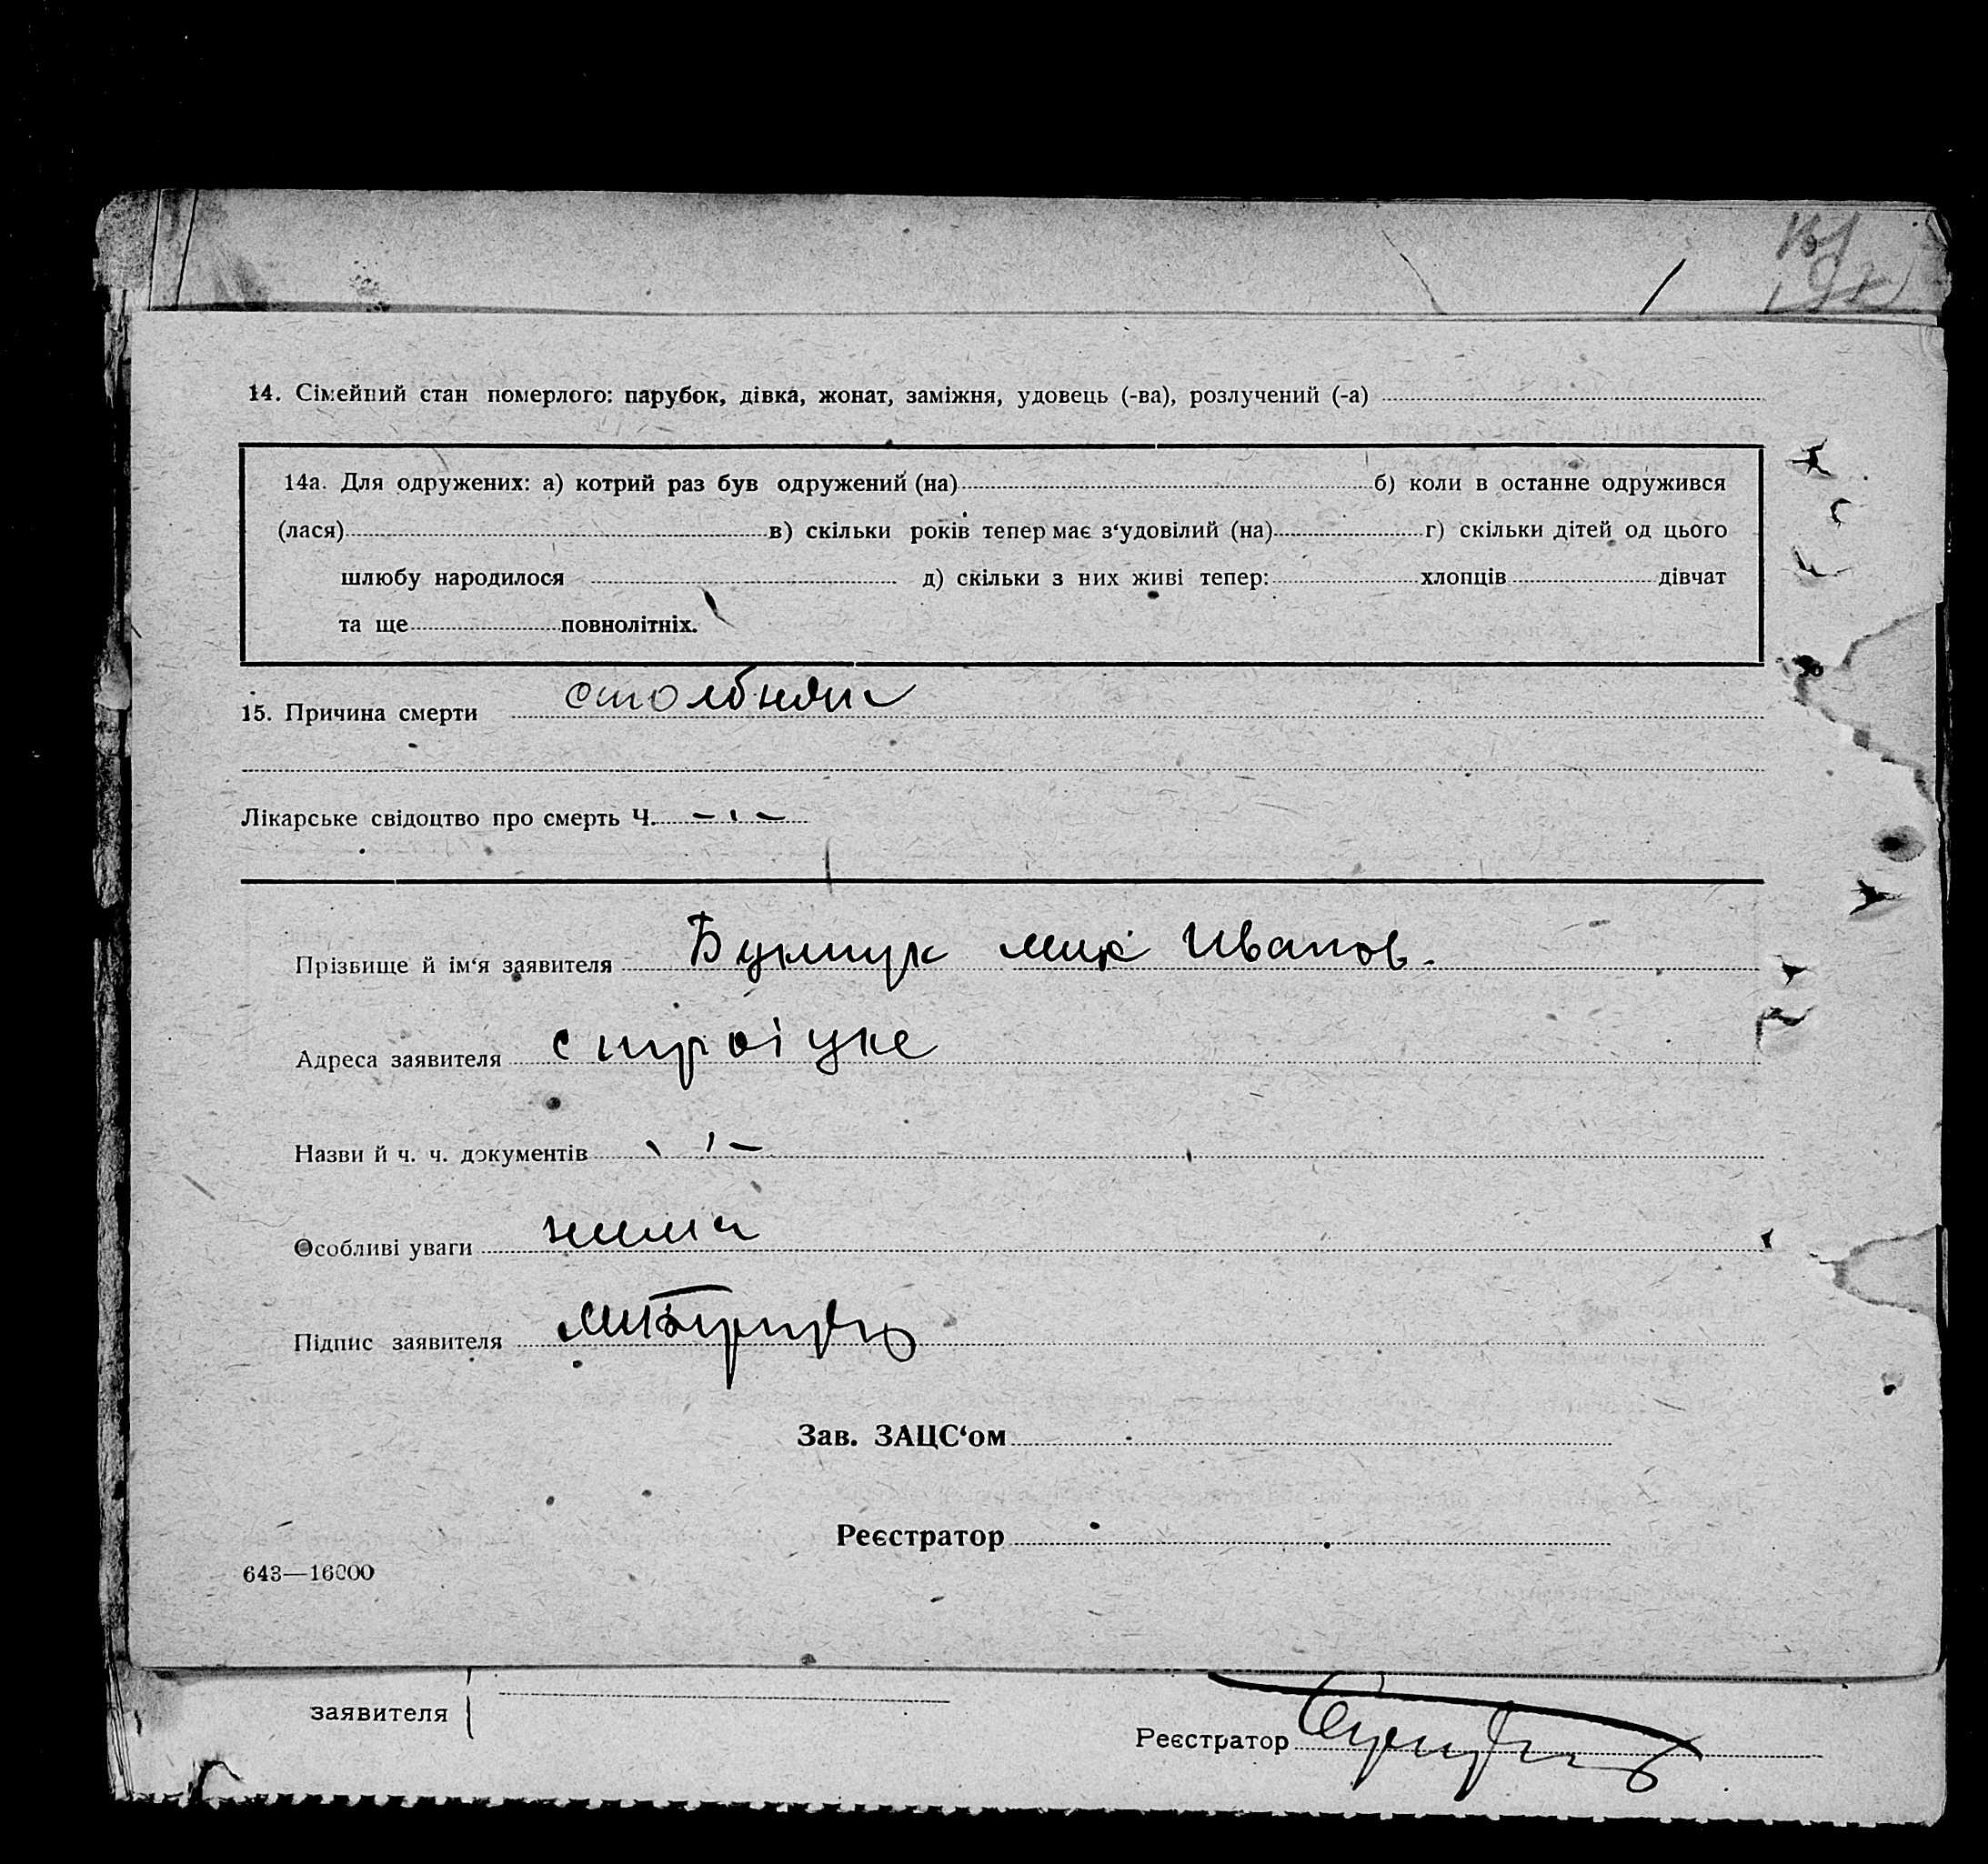 14. Сімейний стан померлого: парубок, дівка, жонат, заміжня, удовець (-ва), розлучений (-а)
14а. Для одружених: а) котрий раз був одружений (на) б) коли в останне одружився
(лася) в) скільки років тепер має з‘удовілий (на) г) скільки дітей од цього
шлюбу народилося д) скільки з них живі тепер: хлопців дівчат
та ще повнолітніх.
15. Причина смерти столбняк
Лікарське свідоцтво про смерть Ч. - ı -
Прізвище й ім‘я заявителя Мик Иванов.
Адреса заявителя с троіцке
Назви й ч. ч. документів
Особливі уваги нима
Підпис заявителя
Зав. ЗАЦС‘ом
Реєстратор
643—16000
заявителя
Реєстратор